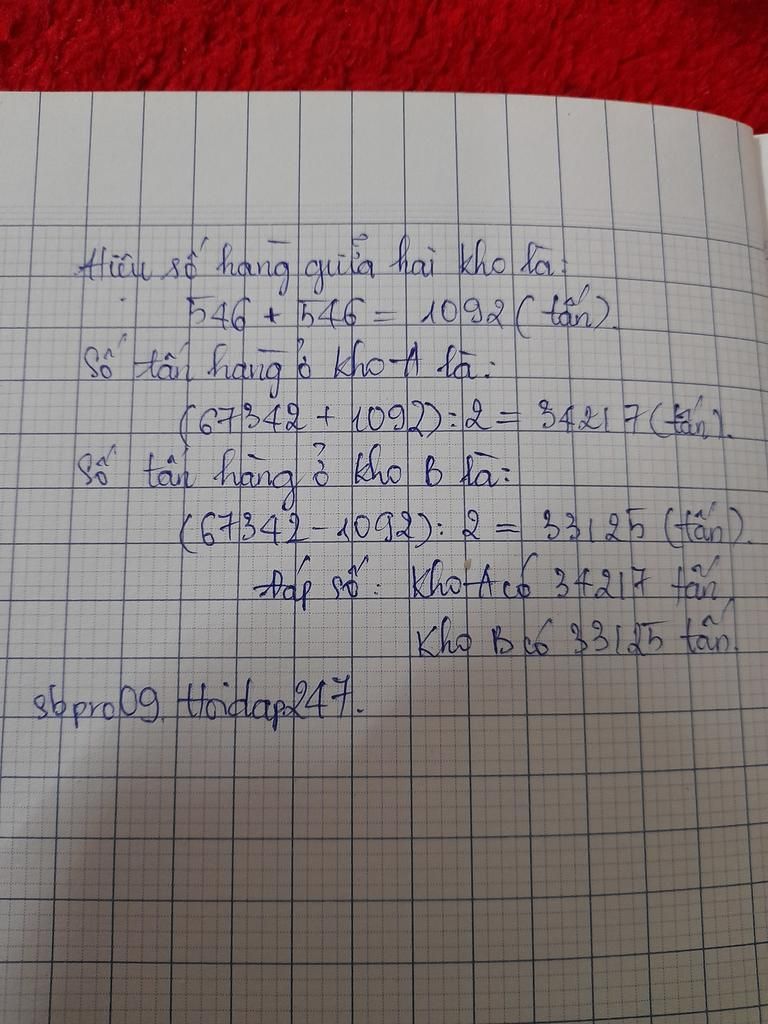 Hiệu số hàng giữa hai kho là:
546 + 546 = 1092 (tấn).
Số tấn hàng ở kho A là:
(67342 + 1092) : 2 = 34217 (tấn).
Số tấn hàng ở kho B là:
(67342 - 1092) : 2 = 33125 (tấn).
Đáp số: Kho A có 34217 tấn
Kho B có 33125 tấn.
sbpro09. Hoidap247.